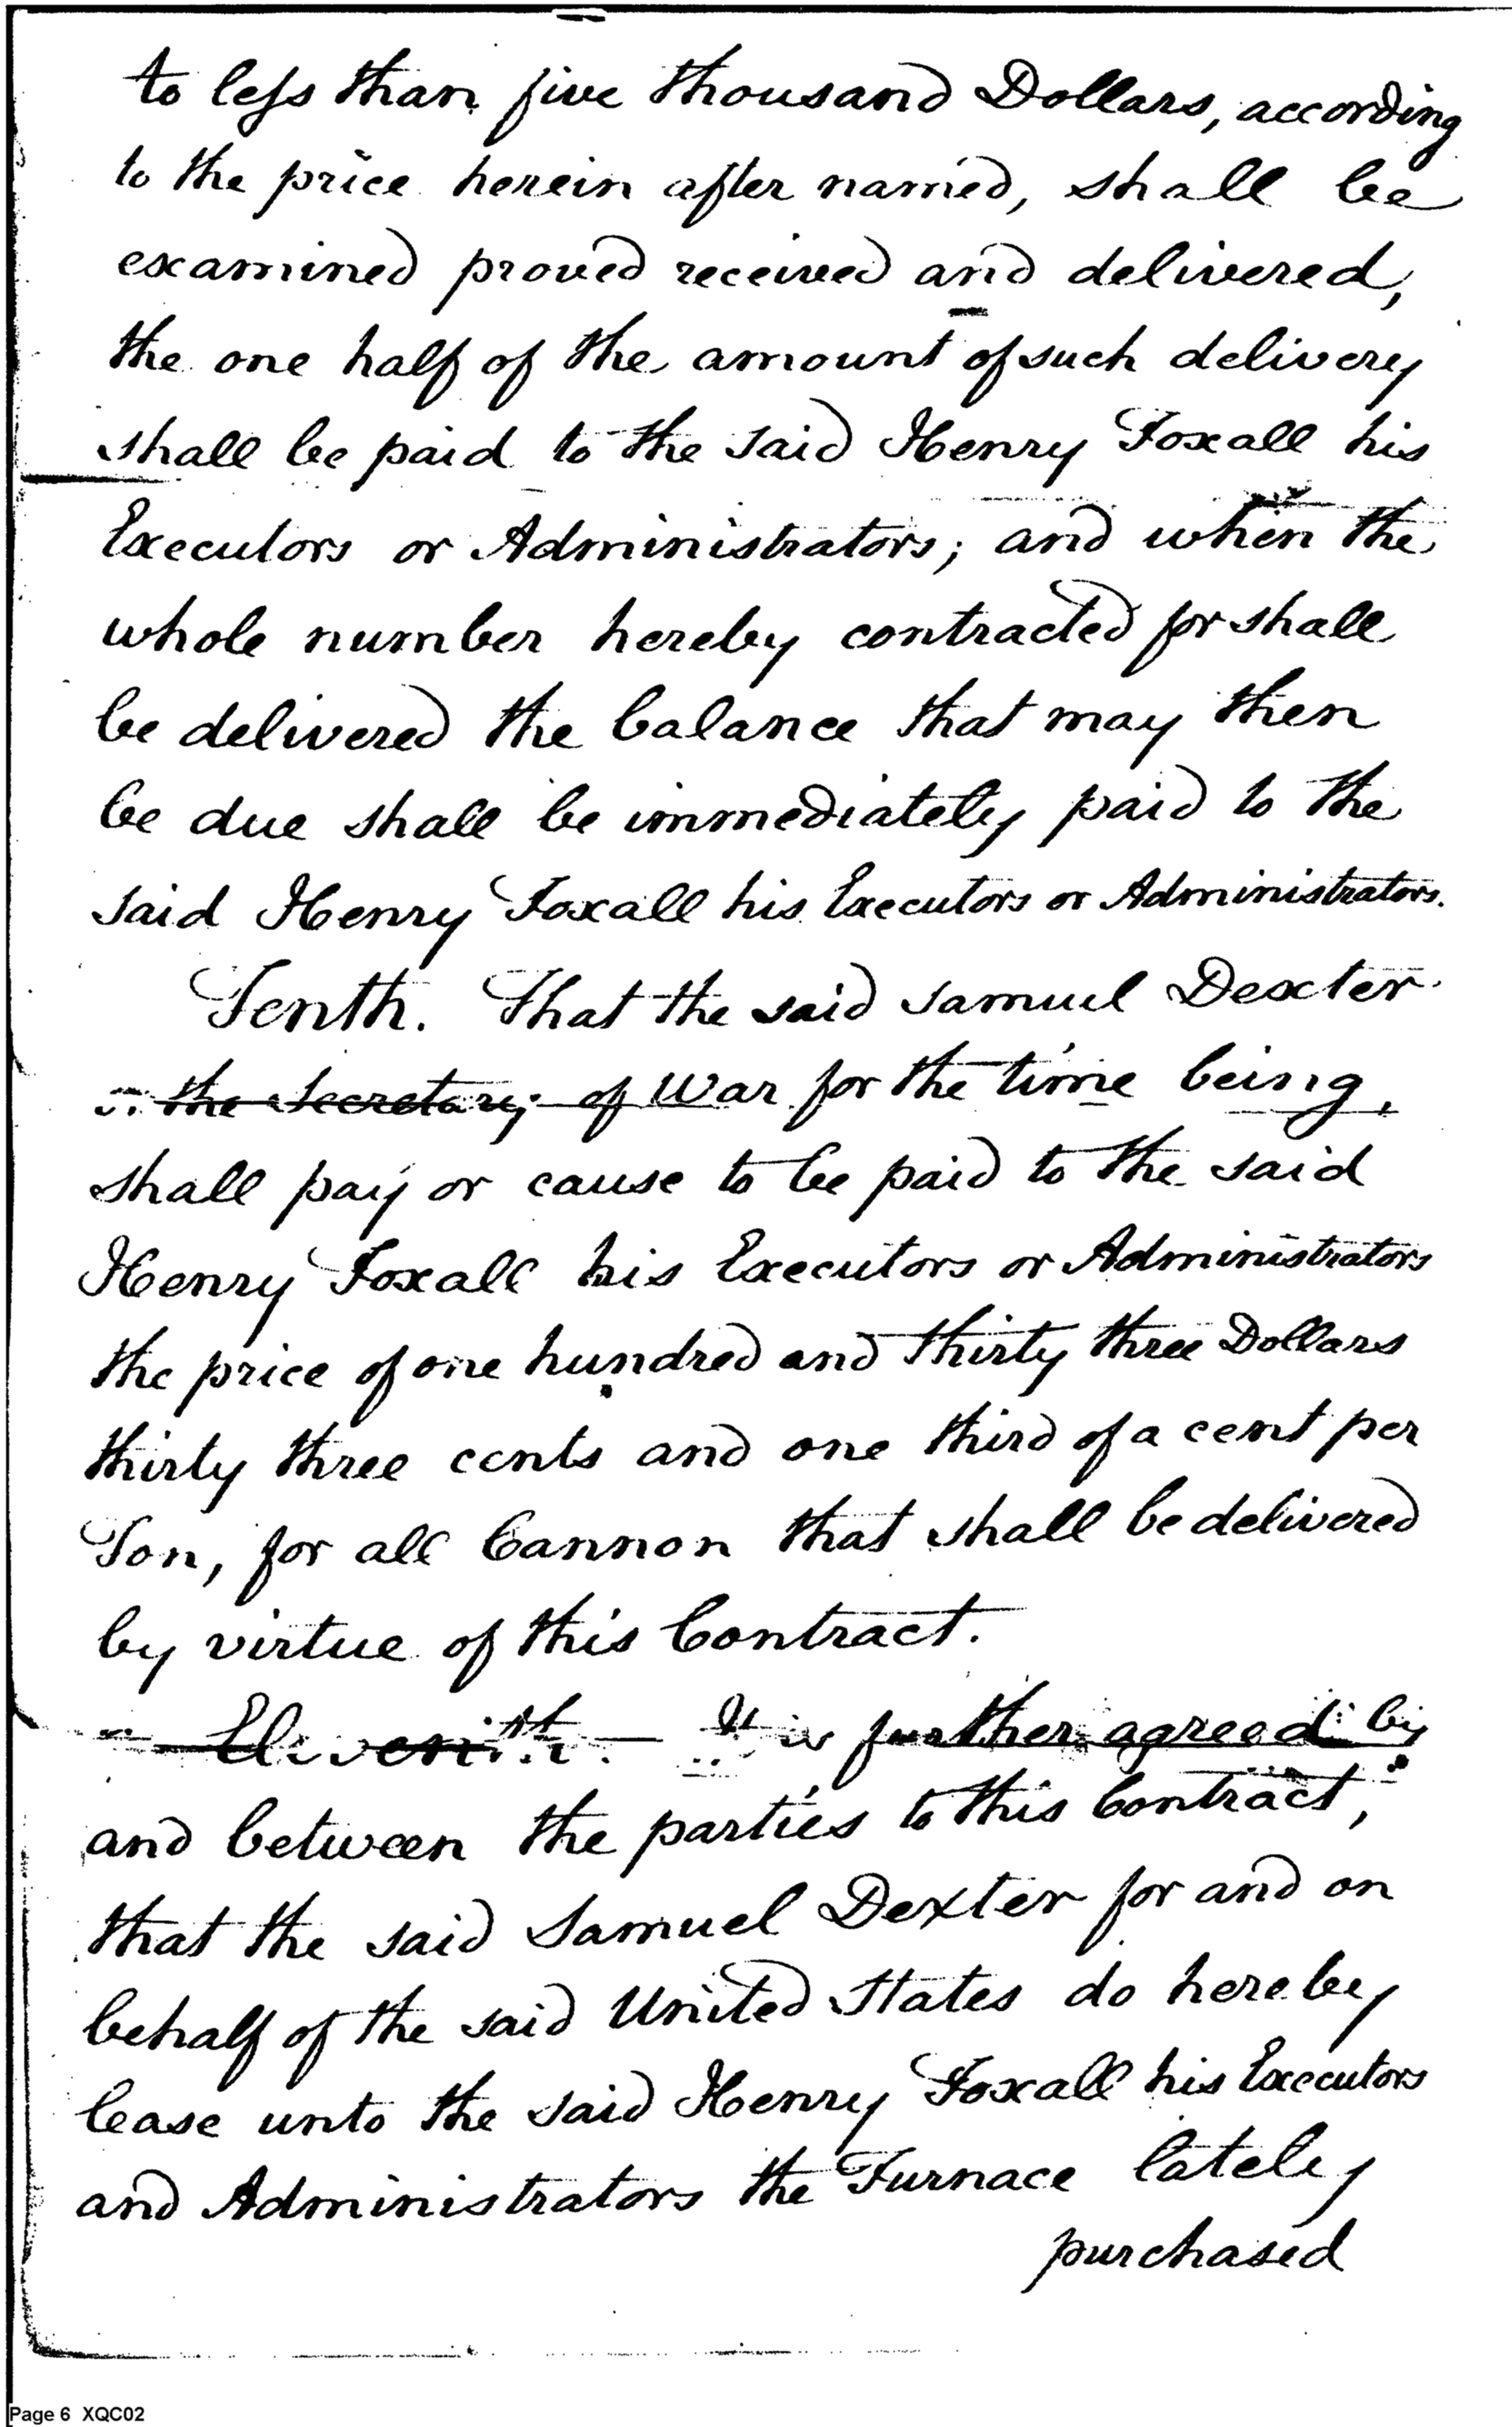 to less than five thousand Dollars, according
to the price herein after named, shall be
examined proved received and delivered,
the one half of the amount of such delivery
shall be paid to the said Henry Foxall his
Executors or Administrators; and when the
whole number hereby contracted for shall
be delivered the balance that may then
be due shall be immediately paid to the
said Henry Foxall his Executors or Administrators.
Tenth. That the said Samuel Dexter
or the Secretary of War for the time being,
shall pay or cause to be paid to the said
Henry Foxall his Executors or Administrators
the price of one hundred and thirty three Dollars
thirty three cents and one third of a cent per
Ton, for all Cannon that shall be delivered
by virtue of this Contract.
Eleventh. It is further agreed by
and between the parties to this Contract,
that the said Samuel Dexter for and on
behalf of the said United States do hereby
lease unto the said Henry Foxall his Executors
and Administrators the Furnace lately
purchased
Page 6 XQC02